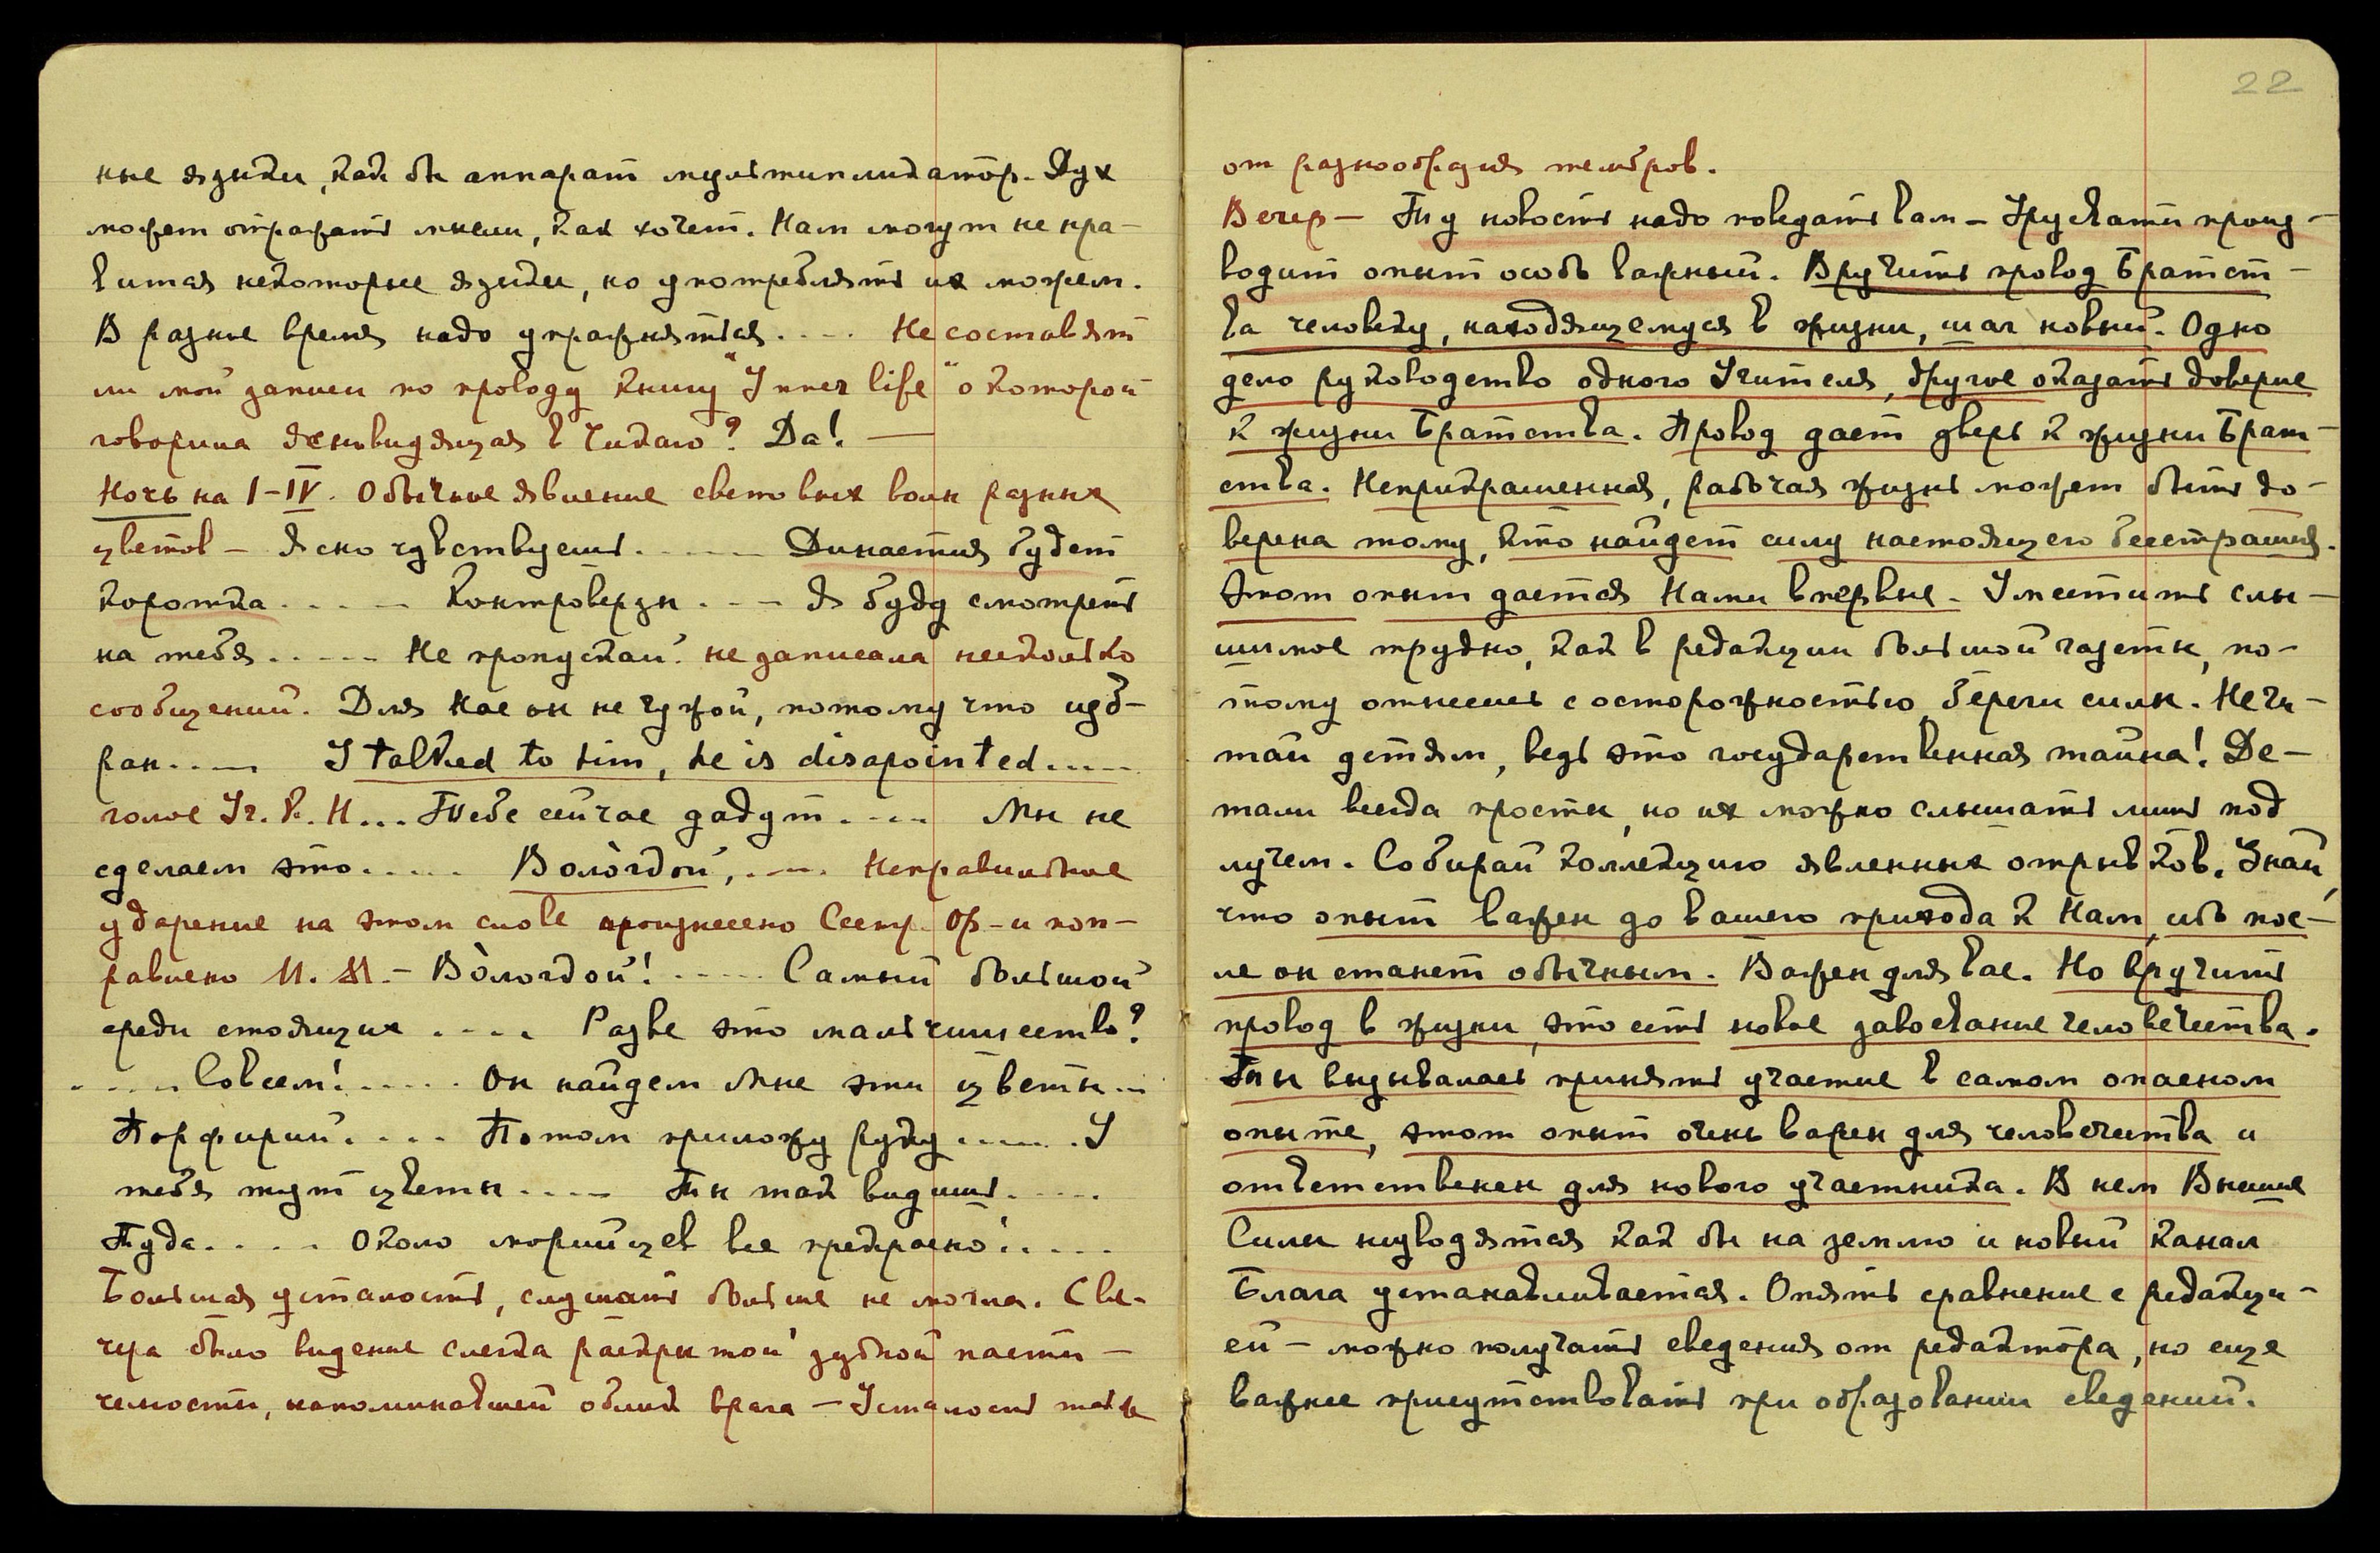 ные языки, как бы аппарат мультипликатор. Дух
может отражать мысли, как хочет. Нам могут не нра-
виться некоторые языки, но употреблять их можем.
В разное время надо упражняться..... Не составят
ли мои записи по проводу книгу "Inner life" о которой
говорила ясновидящая в Чикаго? Да! —
Ночь на 1-IV. Обычное явление световых волн разных
цветов – Ясно чувствуешь...... Династия будет
коротка..... Контроверзы.... Я буду смотреть
на тебя..... Не пропускай. не записала несколько
сообщений. Для Нас он не чужой, потому что изб-
ран..... I talked to him, he is disapointed.....
голос Уч. К. Н... Тебе сейчас дадут.... Мы не
сделаем это..... Воло́гдой,.... Неправильное
ударение на этом слове произнесено Сестр. Ор-и поп-
равлено М. М. – Во́логдой!..... Самый большой
среди стоящих .... Разве это мальчишество?
.... Совсем!..... Он найдет Мне эти цветы...
Порфирий.... Потом приложу руду...... У
тебя ждут цветы.... Ты так видишь.....
Туда.... Около морийцев все прекрасно!.....
Большая усталость, слушать больше не могла. С ве-
чера было видение слегка раскрытой зубной пасти –
челюсти, напоминавшей облик врага – Усталость также
22
от разнообразия тембров.
Вечер – Ту новость надо поведать вам – Урусвати произ-
водит опыт особо важный. Вручить провод Братст-
ва человеку, находящемуся в жизни, шаг новый. Одно
дело руководство одного Учителя, другое оказать доверие
к жизни Братства. Провод дает дверь к жизни Брат-
ства. Неприкрашенная, рабочая жизнь может быть до-
верена тому, кто найдет силу настоящего бесстрашия.
Этот опыт дается Нами впервые. Уместить слы-
шимое трудно, как в редакции большой газеты, по-
тому отнесись с осторожностью, береги силы. Не чи-
тай детям, ведь это государственная тайна! Де-
тали всегда просты, но их можно слышать лишь под
лучем. Собирай коллекцию явленных отрывков. Знай,
что опыт важен до вашего прихода к Нам, ибо пос-
ле он станет обычным. Важен для вас. Но вручить
провод в жизни, это есть новое завоевание человечества.
Ты вызывалась принять участие в самом опасном
опыте, этот опыт очень важен для человечества и
ответственен для нового участника. В нем Высшие
Силы низводятся как бы на землю и новый канал
Блага устанавливается. Опять сравнение с редакци-
ей – можно получать сведения от редактора, но еще
важнее присутствовать при образовании сведений.